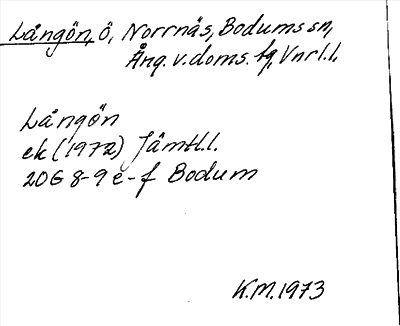 Långön, ö, Norrnäs, Bodums sn,
Ång. v. doms. fg, Vnrl.l.
Långön
ek (1972) Jämtl.l.
20G 8-9 e-f Bodum
K.M. 1973